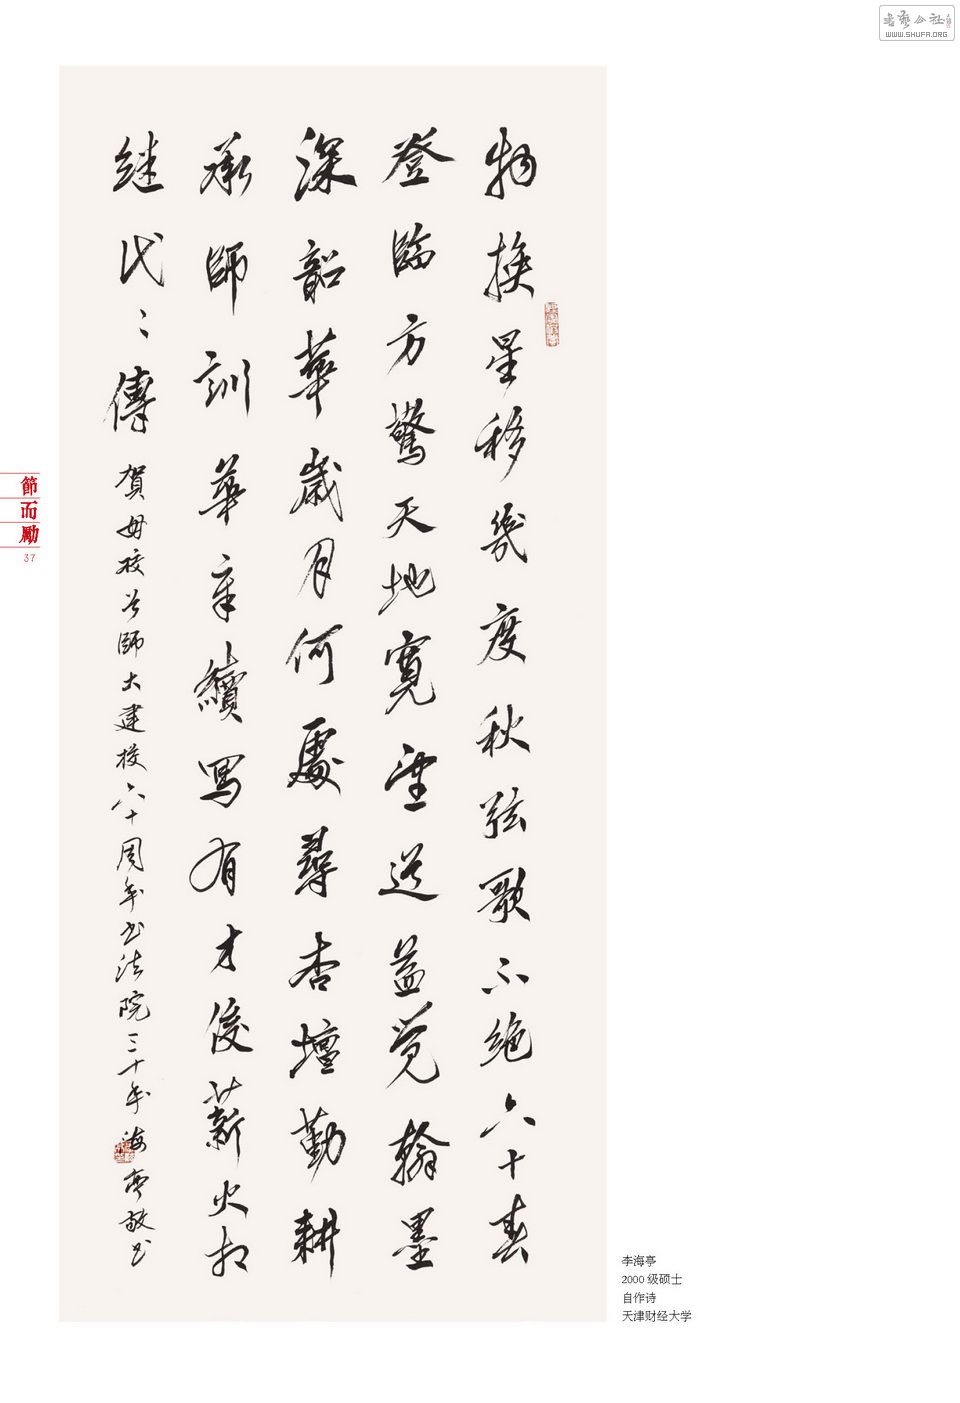 書藝公社
WWW.SHUFA.ORG
物換星移幾度秋弦歌不絶六十春
登臨方驚天地寬望道益觉翰墨
深韶華歲月何處尋杏壇勤耕
承師訓華章續寫有才俊薪火相
继代〻傳 賀母校首師大建校六十周年书法院三十年 海亭敬书
節而勵
37
李海亭
2000 级硕士
自作诗
天津财经大学